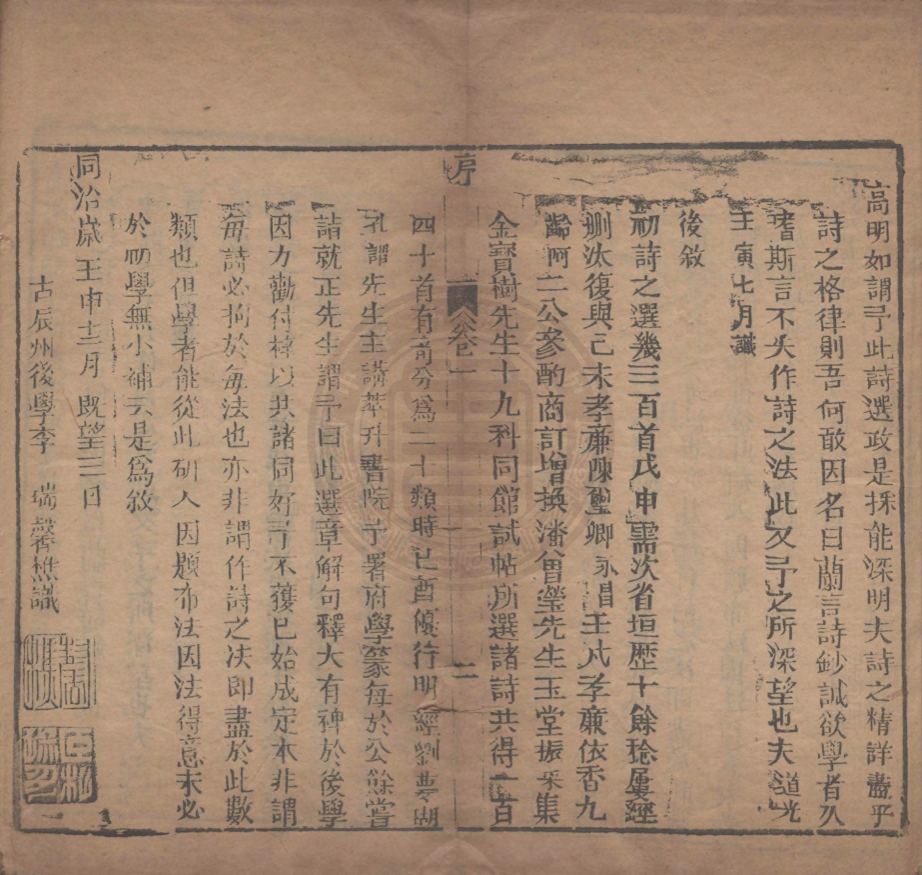 高明如謂予此詩選政是採能深明夫詩之精詳盡乎
詩之格律則吾何敢因名曰蘭言詩鈔誠欲學者久
嗜斯言不失作詩之法此又予之所深望也夫道光
壬寅七月識
後敘
初詩之選幾三百首戊申需次省垣歷十餘稔屢經
刪汰復與己未孝廉陳璽卿永昌壬戌孝廉依香九
二公參酌商訂增換潘曾瑩先生玉堂振采集
金寶樹先生十九科同館試帖所選諸詩共得百
四十首有奇分為二十類時己酉優行明經劉夢湖
孔謂先生主講萃升書院予署府學篆每於公餘嘗
請就正先生謂予曰此選章解句釋大有裨於後學
因力勸付梓以共諸同好予不獲已始成定本非謂
每詩必拘於每法也亦非謂作詩之法即盡於此數
類也但學者能從此研入因題布法因法得意未必
於初學無小補云是為敘
同治歲壬申十二月既望三日
古辰州後學李瑞馨樵識
序
卷一
二